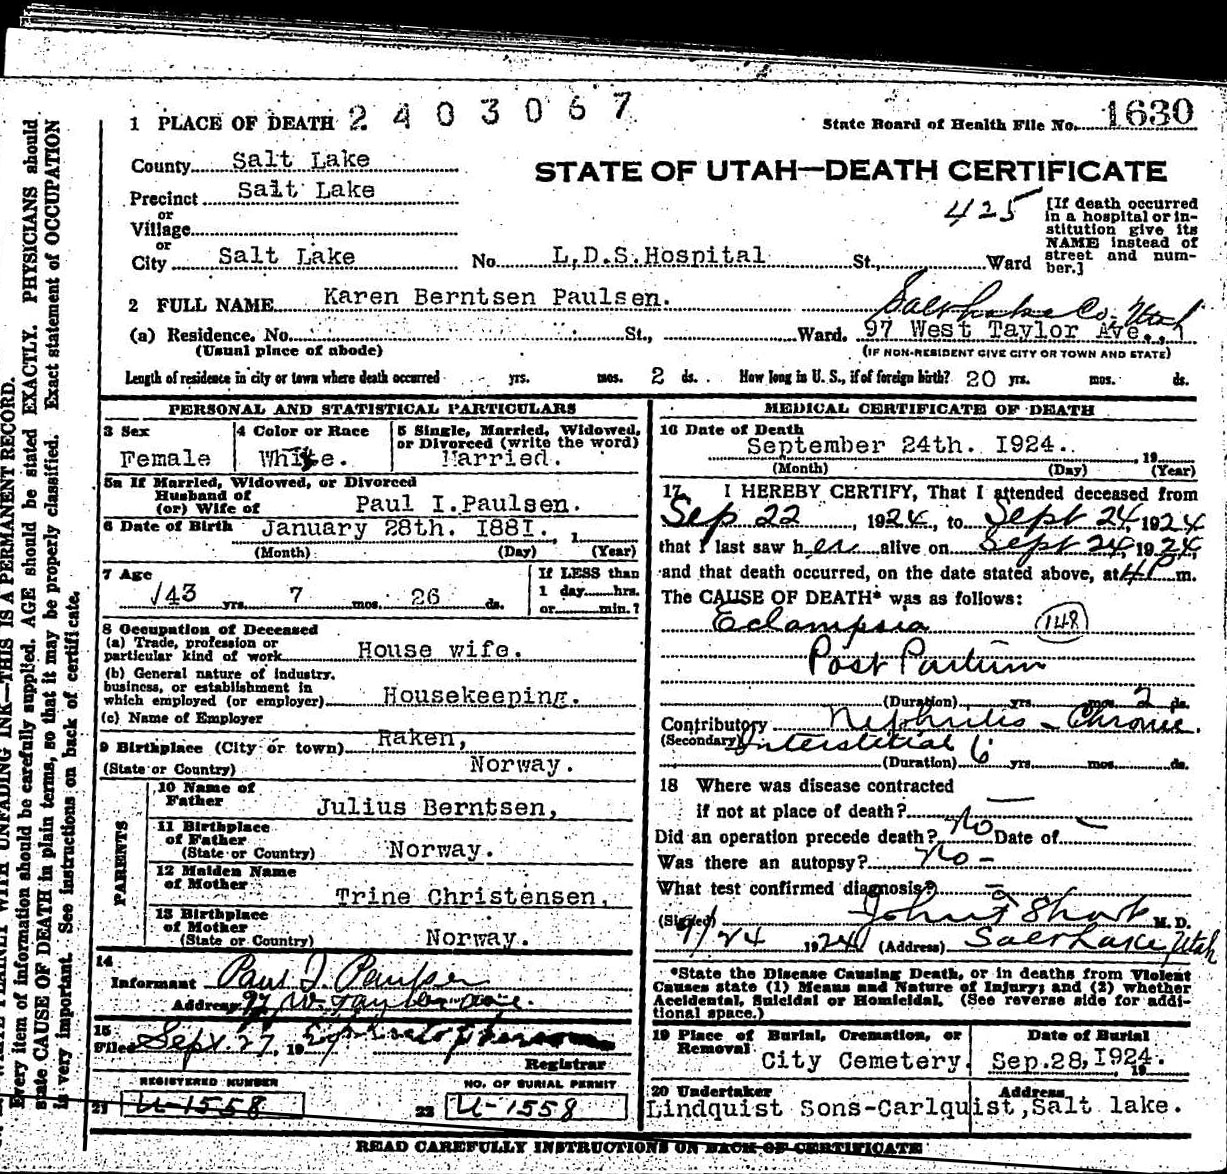 1 PLACE OF DEATH 2 4 0 3 0 6 7
State Board of Health File No. 1630
County Salt Lake
STATE OF UTAH—DEATH CERTIFICATE
Precinct Salt Lake
425
[If death occurred in a hospital or institution give its NAME instead of street and number.]
or
Village
or
City Salt Lake No. L,D.S.Hospital St., Ward
2 FULL NAME Karen Berntsen Paulsen.
Salt Lake Co. Utah
(a) Residence. No. St., Ward. 97 West Taylor Ave.,
(Usual place of abode) (IF NON-RESIDENT GIVE CITY OR TOWN AND STATE)
Length of residence in city or town where death occurred yrs. mos. 2 ds. How long in U. S., if of foreign birth? 20 yrs. mos. ds.
PERSONAL AND STATISTICAL PARTICULARS
3 Sex
Female
4 Color or Race
White.
5 Single, Married, Widowed, or Divorced (write the word)
Married.
5a If Married, Widowed, or Divorced
Husband of
(or) Wife of Paul I.Paulsen.
6 Date of Birth January 28th. I88I. 1
(Month) (Day) (Year)
7 Age
43 yrs. 7 mos. 26 ds.
If LESS than
1 day hrs.
or min.?
8 Occupation of Deceased
(a) Trade, profession or
particular kind of work House wife.
(b) General nature of industry,
business, or establishment in
which employed (or employer) Housekeeping.
(c) Name of Employer
9 Birthplace (City or town) Raken,
(State or Country) Norway.
PARENTS
10 Name of
Father Julius Berntsen,
11 Birthplace
of Father
(State or Country) Norway.
12 Maiden Name
of Mother Trine Christensen,
13 Birthplace
of Mother
(State or Country) Norway.
14
Informant Paul I. Paulsen
Address 97 W. Taylor Ave.
15
Filed Sept. 27, 19
Registrar
REGISTERED NUMBER
21 U-1558
NO. OF BURIAL PERMIT
22 U-1558
MEDICAL CERTIFICATE OF DEATH
16 Date of Death
September 24th. I924. 19
(Month) (Day) (Year)
17 I HEREBY CERTIFY, That I attended deceased from
Sep 22, 1924, to Sept 24, 1924
that I last saw her alive on Sept 24, 1924,
and that death occurred, on the date stated above, at 4P m.
The CAUSE OF DEATH* was as follows:
Eclampsia 148
Post Partum
(Duration) yrs. mos. 2 ds.
Contributory Nephritis - Chronic.
(Secondary) Interstitial
(Duration) 6 yrs. mos. ds.
18 Where was disease contracted
if not at place of death?
Did an operation precede death? No Date of
Was there an autopsy? No -
What test confirmed diagnosis?
(Signed) M. D.
9/24 1924 (Address) Salt Lake, Utah
*State the Disease Causing Death, or in deaths from Violent
Causes state (1) Means and Nature of Injury; and (2) whether
Accidental, Suicidal or Homicidal. (See reverse side for addi-
tional space.)
19 Place of Burial, Cremation, or
Removal City Cemetery.
Date of Burial
Sep.28,I924. 19
20 Undertaker Address
Lindquist Sons-Carlquist,Salt lake.
READ CAREFULLY INSTRUCTIONS ON BACK OF CERTIFICATE
WRITE PLAINLY WITH UNFADING INK—THIS IS A PERMANENT RECORD.
Every item of information should be carefully supplied. AGE should be stated EXACTLY. PHYSICIANS should
state CAUSE OF DEATH in plain terms, so that it may be properly classified. Exact statement of OCCUPATION
is very important. See instructions on back of certificate.